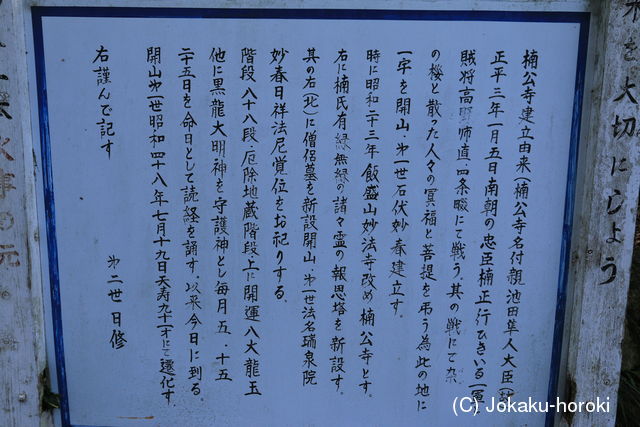 楠公寺建立由来(楠公寺名付親池田隼人大臣
正平三年一月五日南朝の忠臣楠正行ひきいる一軍
賊将高師直、四条畷にて戦う、其の戦にて
の桜と散った人々の冥福と菩提を弔う為此の地に
一宇を開山、第一世石伏妙春建立す。
時に昭和二十三年飯盛山妙法寺改め楠公寺とす。
右に楠氏有縁無縁の諸々霊の報恩塔を新設す。
其の右(北)に僧侶墓を新設開山、第一世法名瑞泉院
妙春日祥法尼覚位をお祀りする。
階段八十八段、厄除地蔵階段上に開運八大龍王
他に黒龍大明神を守護神とし毎月五、十五
二十五日を命日として読経を誦す、以来今日に到る。
開山第一世昭和四十八年七月十九日天寿九十一才にて遷化す。
右謹んで記す
第二世日修
木を大切にしよう
火事の元。
(C) Jokaku-horoki